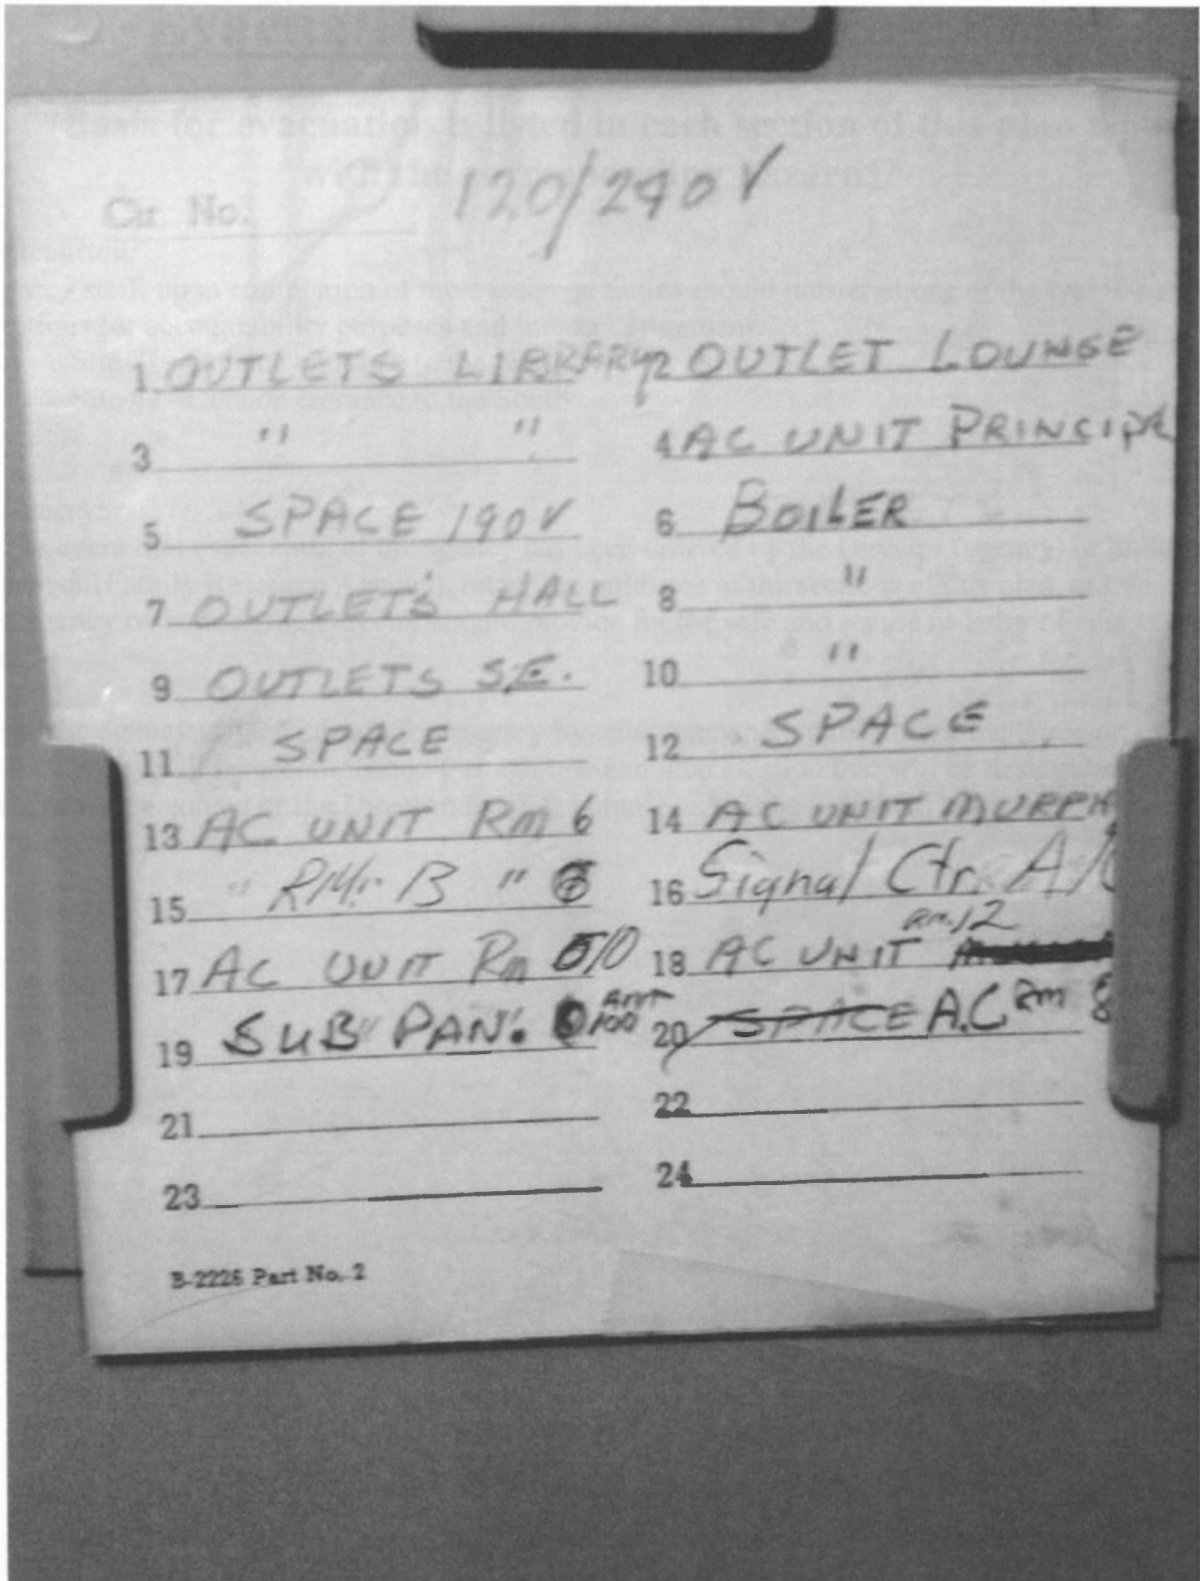 Cir. No. 120/240V
1 OUTLETS LIBRARY 2 OUTLET LOUNGE
3 " " 4 AC UNIT PRINCIPA
5 SPACE 190V 6 BOILER
7 OUTLETS HALL 8 "
9 OUTLETS S.E. 10 "
11 SPACE 12 SPACE
13 AC UNIT Rm 6 14 AC UNIT MURPH
15 " RM. B " 16 Signal Ctr. A/C
17 AC UNIT Rm 10 18 AC UNIT RM. 12
19 SUB PAN. 100 AMP 20 SPACE A.C Rm 8
21 22
23 24
B-2226 Part No. 2